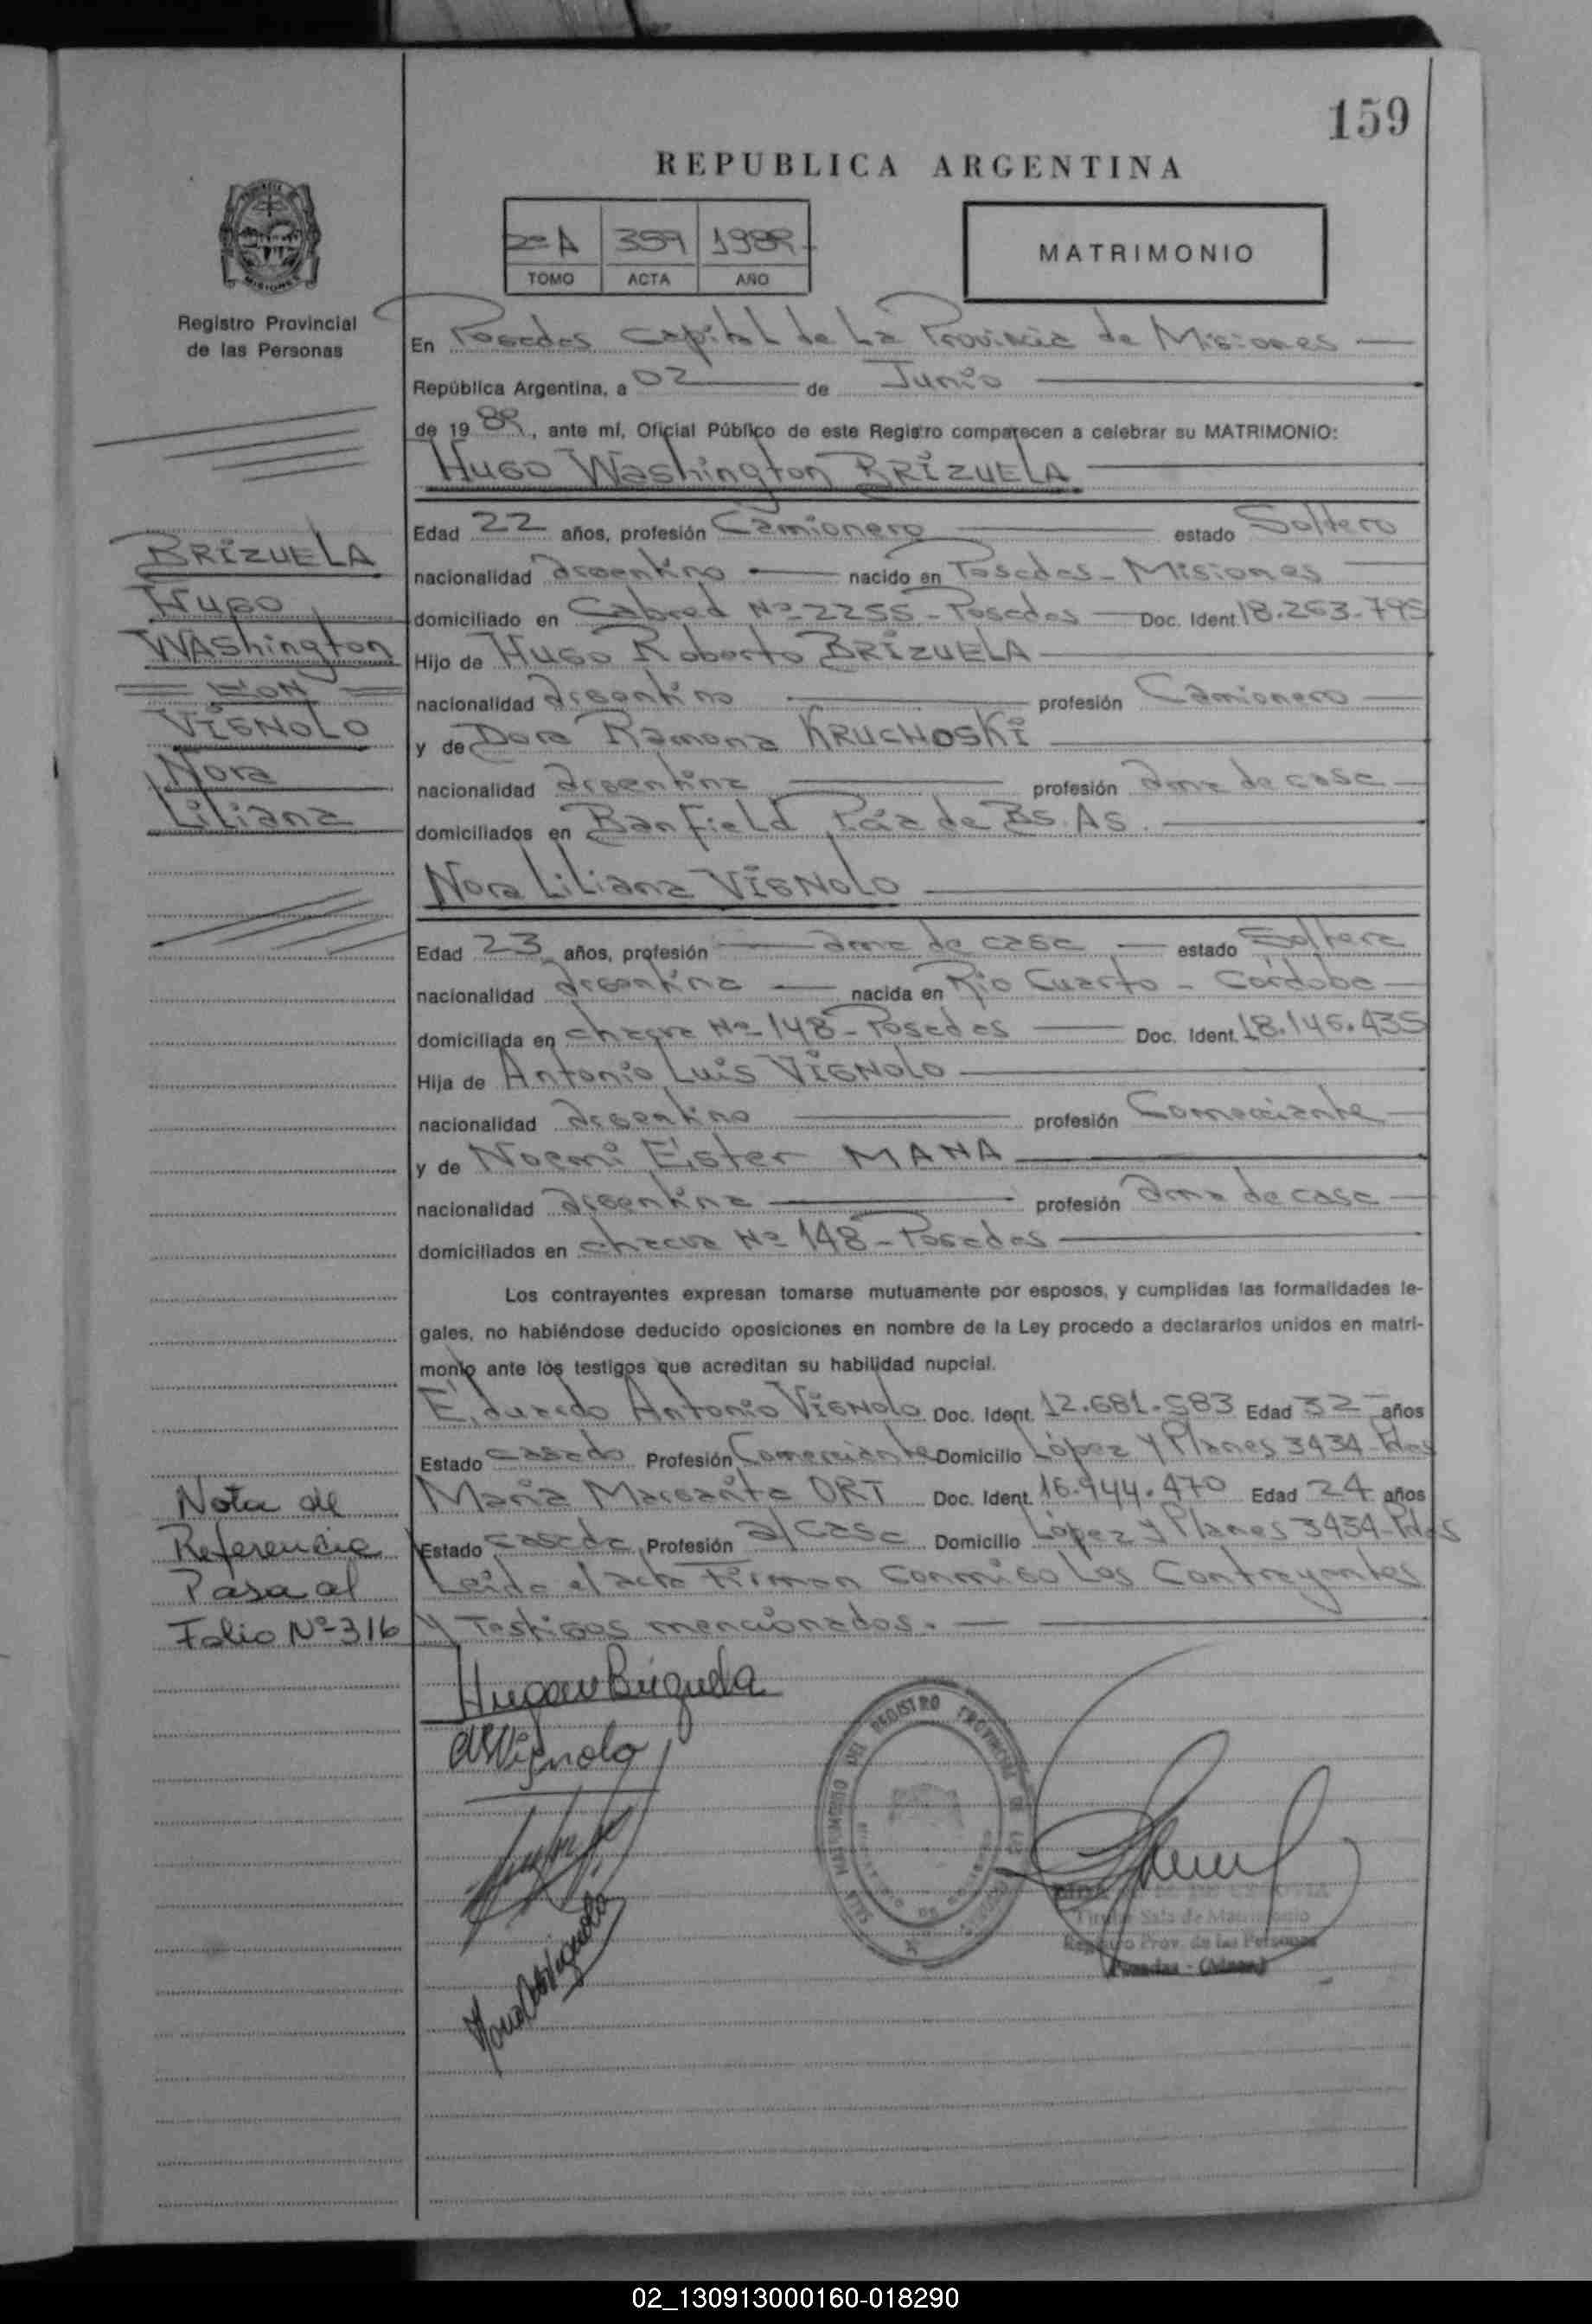 159
REPUBLICA ARGENTINA
2º A 359 1989
TOMO ACTA AÑO
MATRIMONIO
Registro Provincial
de las Personas
En Posadas Capital de La Provincia de Misiones
República Argentina, a 02 de Junio
de 1989, ante mí, Oficial Público de este Registro comparecen a celebrar su MATRIMONIO:
HUGO Washington BRIZUELA
Edad 22 años, profesión Camionero estado Soltero
nacionalidad argentino nacido en Posadas - Misiones
domiciliado en Cabred Nº 2255 - Posadas Doc. Ident. 18.263.795
Hijo de HUGO Roberto BRIZUELA
nacionalidad argentino profesión Camionero
y de Dora Ramona KRUCHOSKI
nacionalidad argentina profesión ama de casa
domiciliados en Banfield Pcia de Bs. As.
Nora Liliana VIGNOLO
Edad 23 años, profesión ama de casa estado Soltera
nacionalidad argentina nacida en Río Cuarto - Córdoba
domiciliada en chacra Nº 148 - Posadas Doc. Ident. 18.146.435
Hija de Antonio Luis VIGNOLO
nacionalidad argentino profesión Comerciante
y de Noemi Ester MANA
nacionalidad argentina profesión ama de casa
domiciliados en chacra Nº 148 - Posadas
Los contrayentes expresan tomarse mutuamente por esposos, y cumplidas las formalidades le-
gales, no habiéndose deducido oposiciones en nombre de la Ley procedo a declararlos unidos en matri-
monio ante los testigos que acreditan su habilidad nupcial.
Eduardo Antonio VIGNOLO Doc. Ident. 12.681.583 Edad 32 años
Estado casado Profesión Comerciante Domicilio López y Planes 3434 - Pdas
María Margarita ORT Doc. Ident. 16.944.470 Edad 24 años
Estado casada Profesión a/casa Domicilio López y Planes 3434 - Pdas
Leída el acta Firman conmigo Los Contrayentes
y Testigos mencionados.
BRIZUELA
Hugo
WAshington
CON
VIGNOLO
Nora
Liliana
Nota de
Referencia
Pasa al
Folio Nº 316
HugoWBrizuela
Vignolo
SALA MATRIMONIO DEL REGISTRO PROVINCIAL DE LAS PERSONAS
Titular Sala de Matrimonio
Registro Prov. de las Personas
Posadas - (Mnes.)
02_130913000160-018290